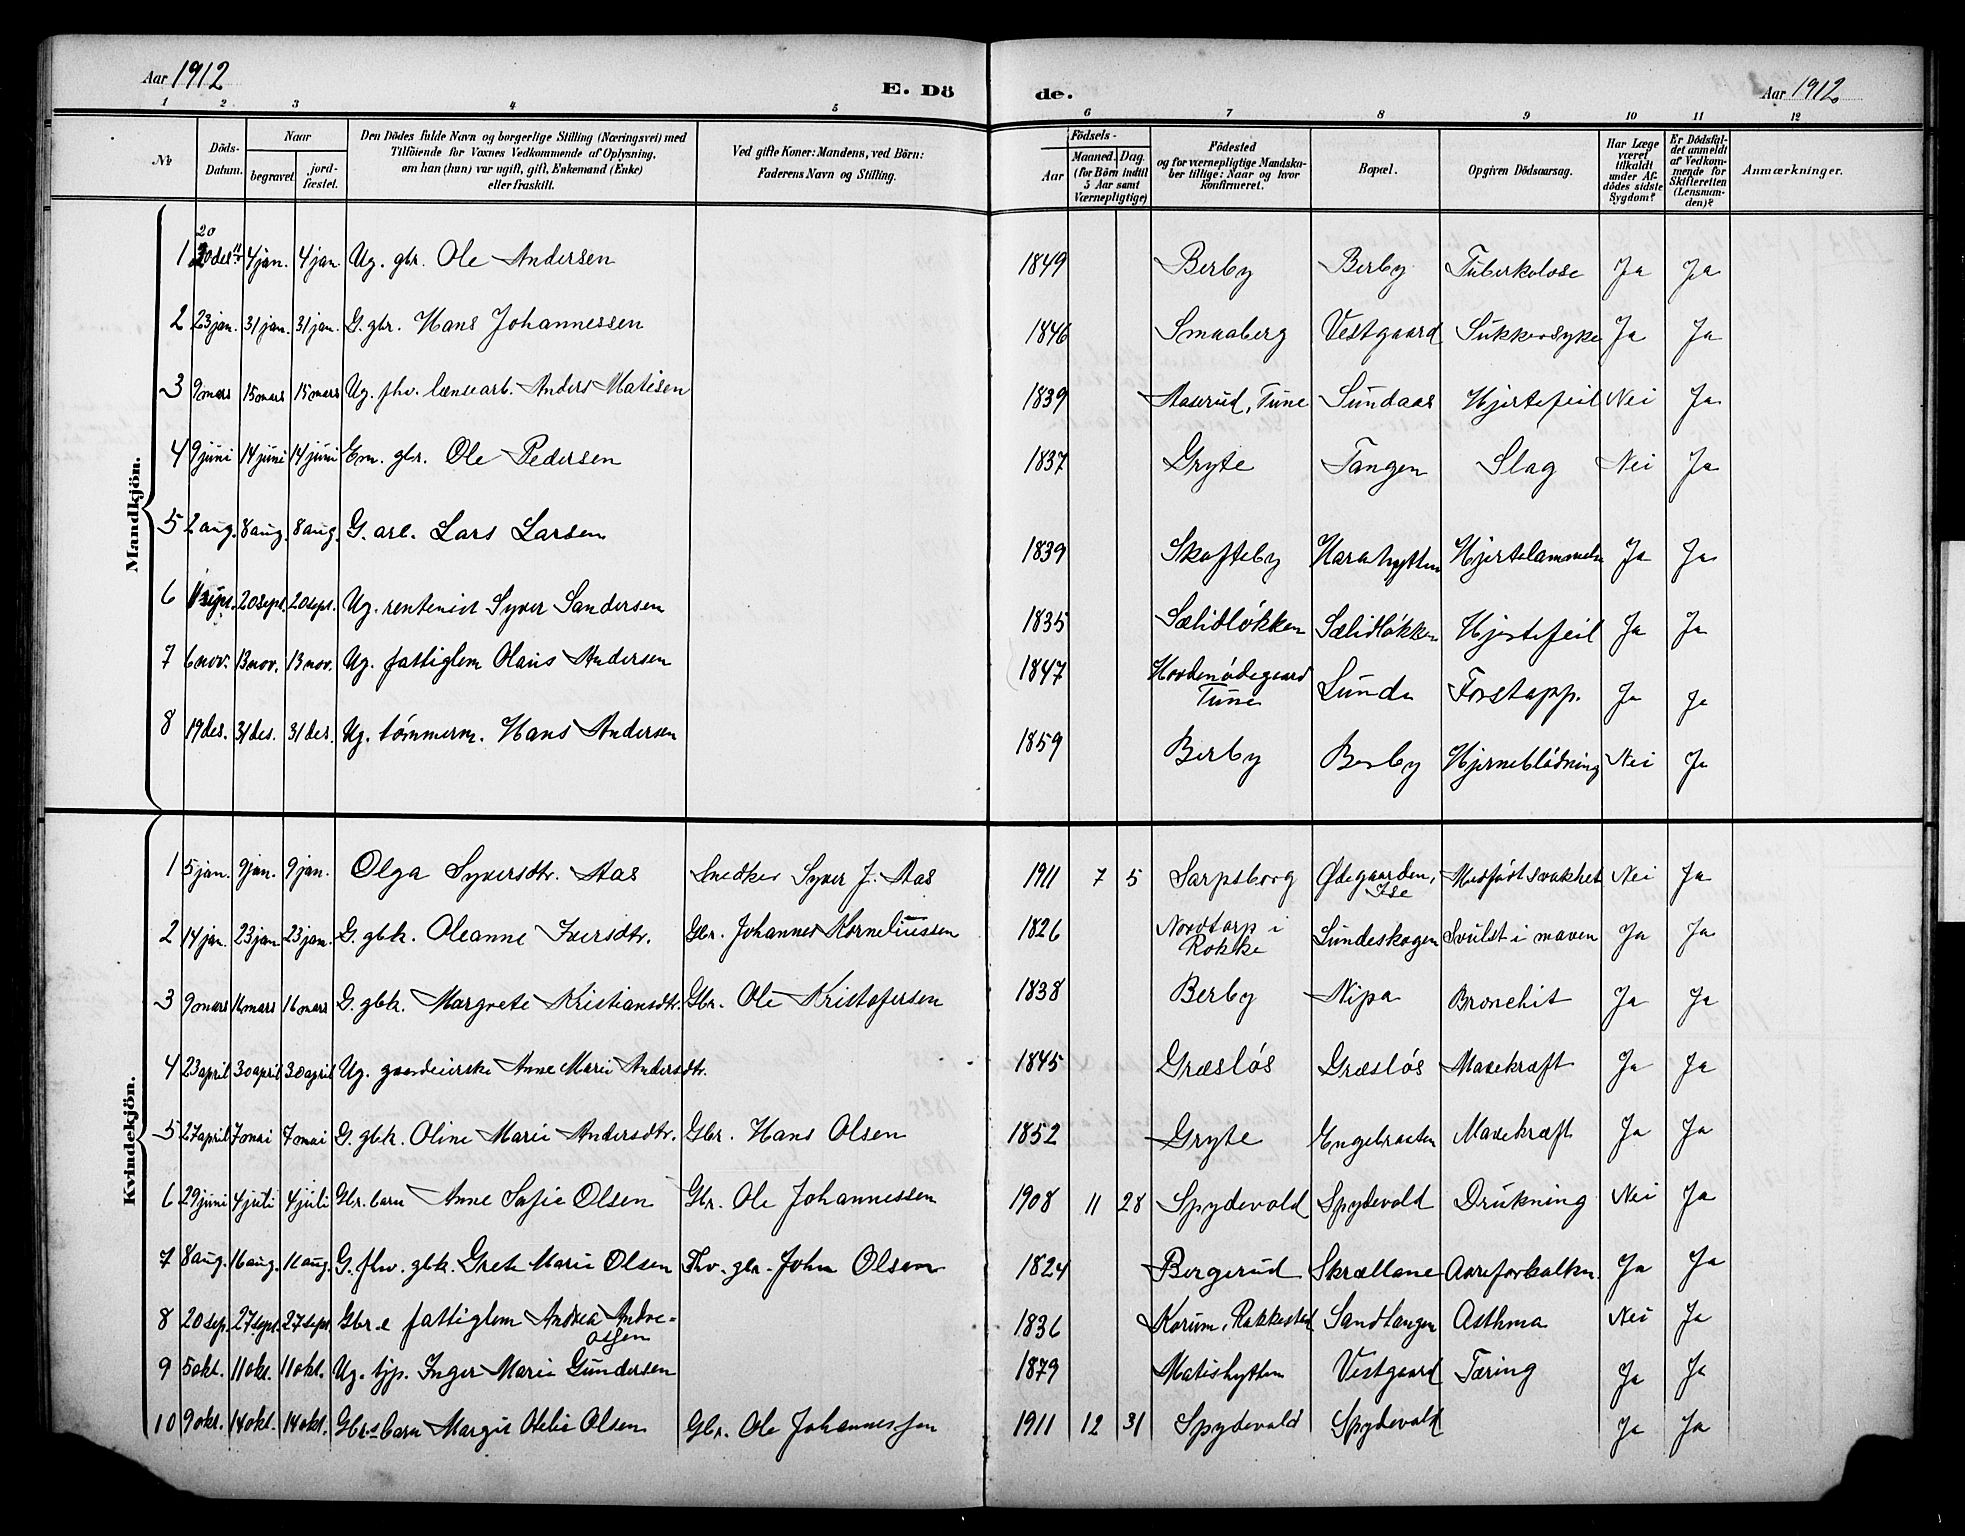 Aar 1912
E. Dö
de.
Aar 1912
1 2 3 4 5 6 7 8 9 10 11 12
No
Döds-Datum.
Naar
begravet.
jord-fæstet.
Den Dödes fulde Navn og borgerlige Stilling (Næringsvei) med
Tilföiende for Voxnes Vedkommende af Oplysning,
om han (hun) var ugift, gift, Enkemand (Enke)
eller fraskilt.
Ved gifte Koner: Mandens, ved Börn:
Faderens Navn og Stilling.
Födsels-
Aar
Maaned. Dag.
(for Börn indtil
5 Aar samt
Værnepligtige)
Födested
og for værnepligtige Mandska-
ber tillige: Naar og hvor
konfirmeret.
Bopæl.
Opgiven Dödsaarsag.
Har Læge
været
tilkaldt
under Af-
dödes sidste
Sygdom?
Er Dödsfal-
det anmeldt
af Vedkom-
mende for
Skifteretten
(Lensman-
den)?
Anmærkninger.
Mandkjön.
1 20 des 11 4 jan. 4 jan Ug. gbr. Ole Andersen 1849 Berby Berby Tuberkolose Ja Ja
2 23 jan. 31 jan. 31 jan. G. gbr. Hans Johannessen 1846 Smaaberg Vestgaard Sukkersyke Ja Ja
3 9 mars 15 mars 15 mars Ug. fhv. lænsearb. Anders Matisen 1839 Aaserud, Tune Sundaas Hjertefeil Nei Ja
4 9 juni 14 juni 14 juni Em. gbr. Ole Pedersen 1837 Gryte Tangen Slag Nei Ja
5 2 aug. 8 aug. 8 aug. G. arb. Lars Larsen 1839 Skofteby Harahytten Hjertelammelse Ja Ja
6 sept. 20 sept. 20 sept. Ug. rentenist Syver Sandersen 1835 Sælidløkken Sælidløkken Hjertefeil Ja Ja
7 6 nov. 13 nov. 13 nov. Ug. fattiglem Olaus Andersen 1847 Hovdenødegaard
Tune Lunde Forstopp. Ja Ja
8 19 des. 31 des. 31 des. Ug. tømmerm. Hans Andersen 1859 Berby Berby Hjerneblødning Nei Ja
Kvindekjön.
1 5 jan. 9 jan. 9 jan. Olga Syversdtr. Aas Snedker Syver J. Aas 1911 7 5 Sarpsborg Ødegaarden,
Ise Medfødt svakhet Nei Ja
2 14 jan. 23 jan 23 jan. G. gbk. Oleanne Iversdtr. Gbr. Johannes Korneliussen 1826 Nordtorp i
Rokke Lundeskogen Svulst i maven Ja Ja
3 9 mars 16 mars 16 mars G. gbk. Margrete Kristiansdtr. Gbr. Ole Kristofersen 1838 Berby Nipa Bronchit Ja Ja
4 23 april 30 april 30 april Ug. gaardeierske Anne Marie Andersdtr. 1845 Græsløs Græsløs Mavekræft Ja Ja
5 27 april 7 mai 7 mai G. gbk. Oline Marie Andersdtr. Gbr. Hans Olsen 1852 Gryte Engebraaten Mavekræft Ja Ja
6 29 juni 4 juli 4 juli Gbr. barn Anne Sofie Olsen Gbr. Ole Johannessen 1908 11 28 Spydevold Spydevold Drukning Nei Ja
7 8 aug. 16 aug. 16 aug. G. fhv. gbk. Grete Marie Olsen Fhv. gbr. John Olsen 1824 Bergerud Skrællane Aareforkalkn. Ja Ja
8 20 sep. 27 sept. 27 sept Gbr.e fattiglem Andrea Andre-
assen 1836 Korum, Rakkestad Sandtangen Asthma Nei Ja
9 5 okt. 11 okt. 11 okt. Ug. tjp. Inger Marie Gundersen 1879 Matishytten Vestgaard Tæring Ja Ja
10 9 okt. 14 okt. 14 okt. Gbr.s barn Margit Otelie Olsen Gbr. Ole Johannessen 1911 12 31 Spydevold Spydevold Ja Ja